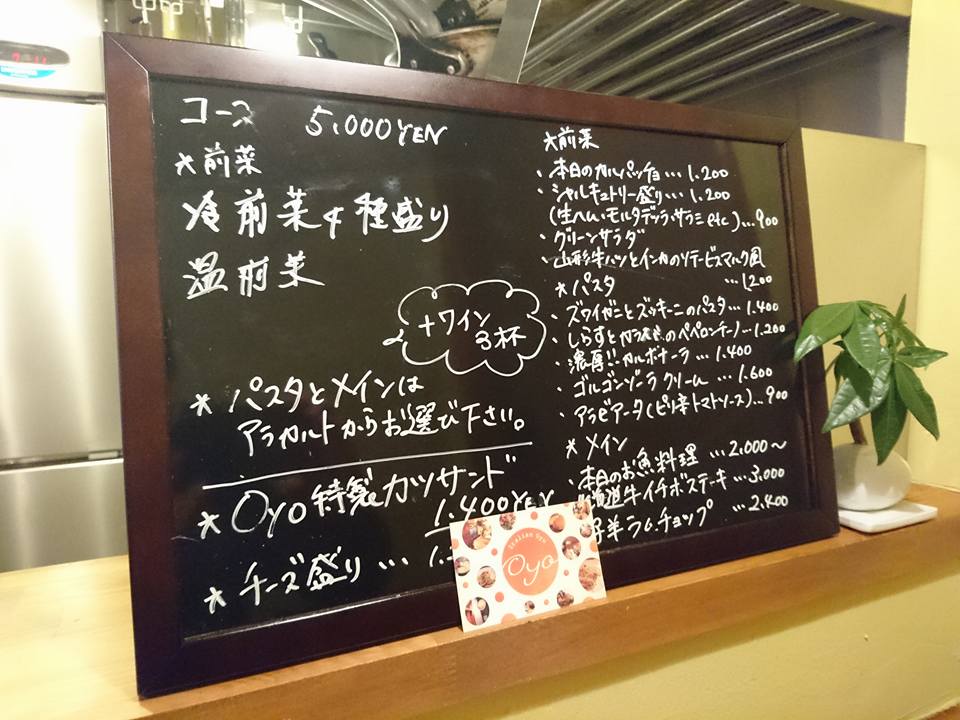 コース 5.000YEN
*前菜
冷前菜4種盛り
温前菜
+ワイン
3杯
*パスタとメインは
アラカルトからお選び下さい。
*Oyo特製カツサンド
1.400YEN
*チーズ盛り … 1.
*前菜
・本日のカルパッチョ … 1.200
・シャルキュトリー盛り … 1.200
(生ハム・モルタデッラ・サラミetc) … 900
・グリーンサラダ
・山形牛ハツとインカのソテービスマルク風
… 1.200
*パスタ
・ズワイガニとズッキーニのパスタ … 1.400
・しらすとカラスミのペペロンチーノ … 1.200
・濃厚!!カルボナーラ … 1.400
・ゴルゴンゾーラクリーム … 1.600
・アラビアータ(ピリ辛トマトソース) … 900
*メイン
・本日のお魚料理 … 2.000〜
海道牛イチボステーキ … 3.000
羊ラムチョップ … 2.400
Italian Oyo
Oyo